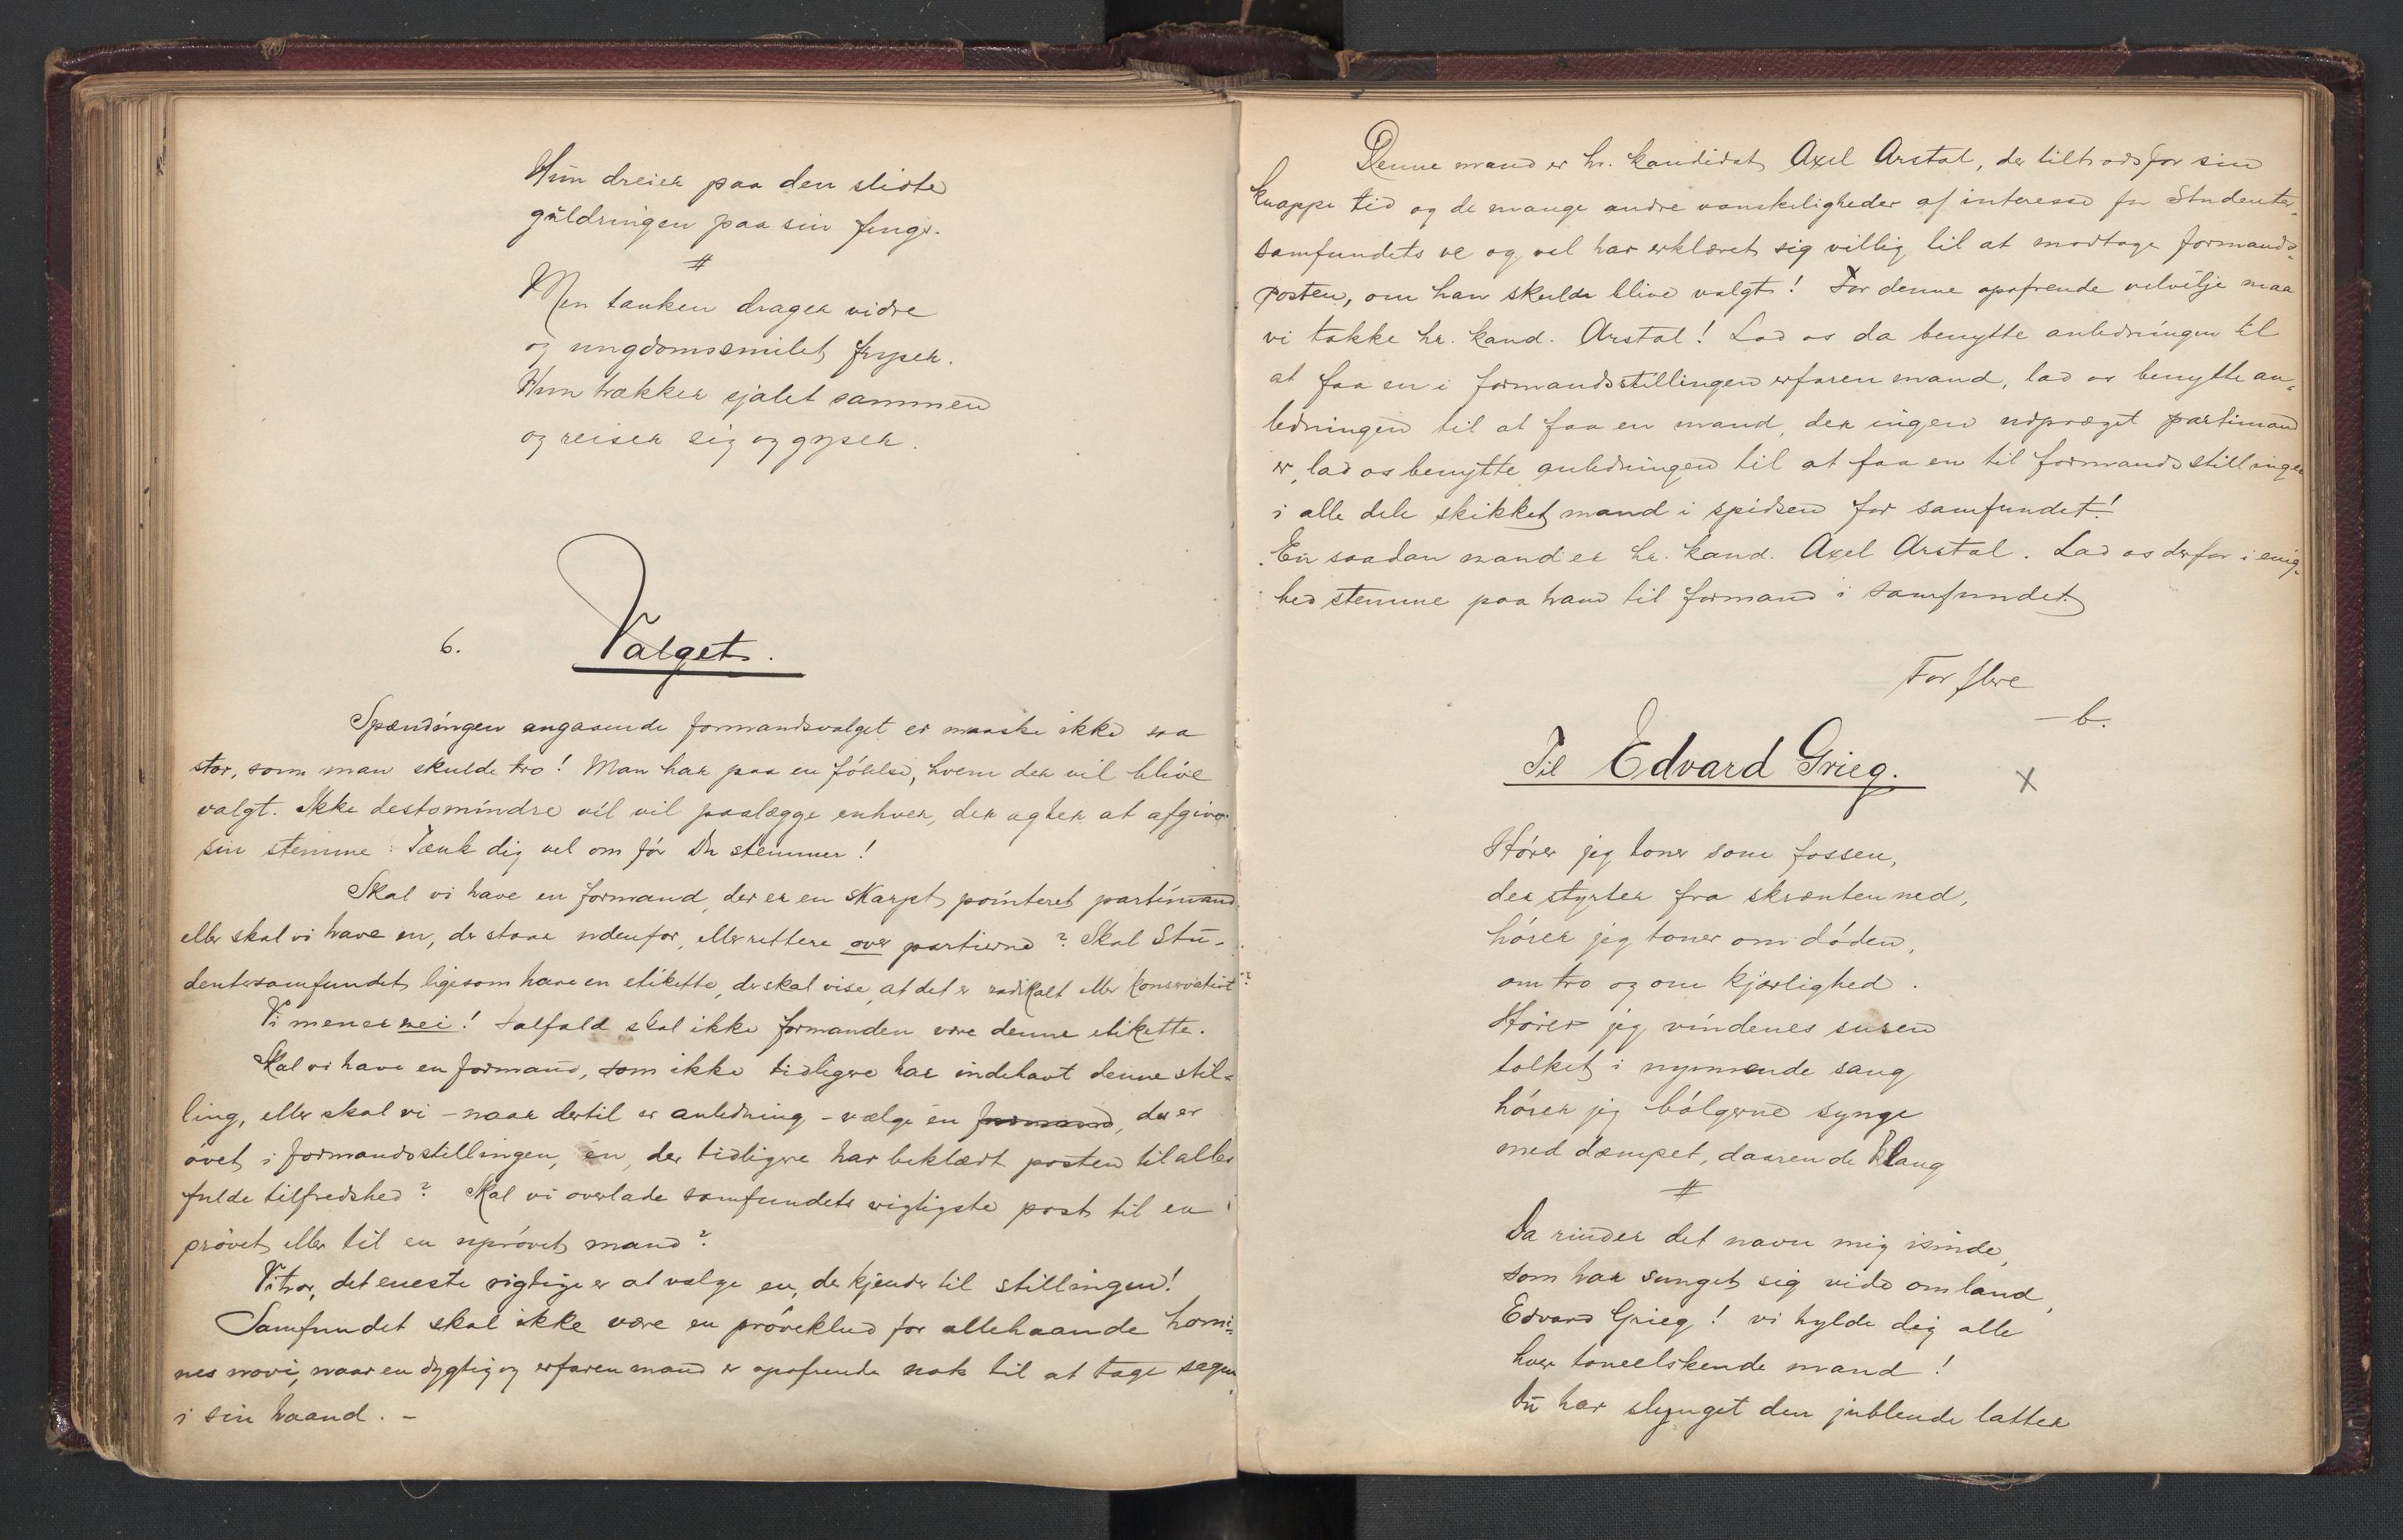 Hun dreier paa den slidte
guldringen paa sin finger.
#
Men tanken drager vidre
og ungdomssmilet fryser.
Hun trækker sjalet sammen
og reiser sig og gyser.
6. Valget.
Spændingen angaaende formandsvalget er maaske ikke saa
stor, som man skulde tro! Man har paa en følelse, hvem der vil blive
valgt. Ikke destomindre vil vil paalægge enhver, der agter at afgive
sin stemme: Tænk dig vel om før du stemmer!
Skal vi have en formand, der er en skarpt pointeret partimand
eller skal vi have en, der staar udenfor, eller rettere over partierne? Skal Stu-
dentersamfundet ligesom have en etikette, der skal vise, at det er radikalt eller konservativt?
Vi mener nei! Ialfald skal ikke formanden være denne etikette.
Skal vi have en formand, som ikke tidligere har indehavt denne stil-
ling, eller skal vi – naar dertil er anledning – vælge en formand, der er
øvet i formandsstillingen, en, der tidligere har beklædt posten til alles
fulde tilfredshed? Skal vi overlade samfundets vigtigste post til en
prøvet eller til en uprøvet mand?
Vi tror, det eneste rigtige er at vælge en, der kjender til stillingen!
Samfundet skal ikke være en prøveklud for allehaande homi-
nes novi, naar en dygtig og erfaren mand er opofrende nok til at tage
i sin haand. –
Denne mand er hr. kandidat Axel Arstal, der tiltrods for sin
knappe tid og de mange andre vanskeligheder af interesse for Studenter-
samfundets ve og vel har erklæret sig villig til at modtage formands-
posten, om han skulde blive valgt! For denne opofrende velvilje maa
vi takke hr. kand. Arstal! Lad os da benytte anledningen til
at faa en i formandsstillingen erfaren mand, lad os benytte an-
ledningen til at faa en mand, der ingen udpræget partimand
er, lad os benytte anledningen til at faa en til formandsstillingen
i alle dele skikket mand i spidsen for samfundet!
En saadan mand er hr. kand. Axel Arstal. Lad os derfor i enig-
hed stemme paa ham til formand i samfundet.
For flere
– b.
Til Edvard Grieg. X
Hører jeg toner som fossen,
der styrter fra skrænten ned,
hører jeg toner om døden,
om tro og om kjærlighed.
Hører jeg vindenes susen
tolket i nynnende sang
hører jeg bølgerne synge
med dæmpet, daarende klang
#
Da rinder det navn mig isinde,
som har sunget sig vide om land,
Edvard Grieg! vi hylde dig alle
hver toneelskende mand!
Du har slynget den jublende latter